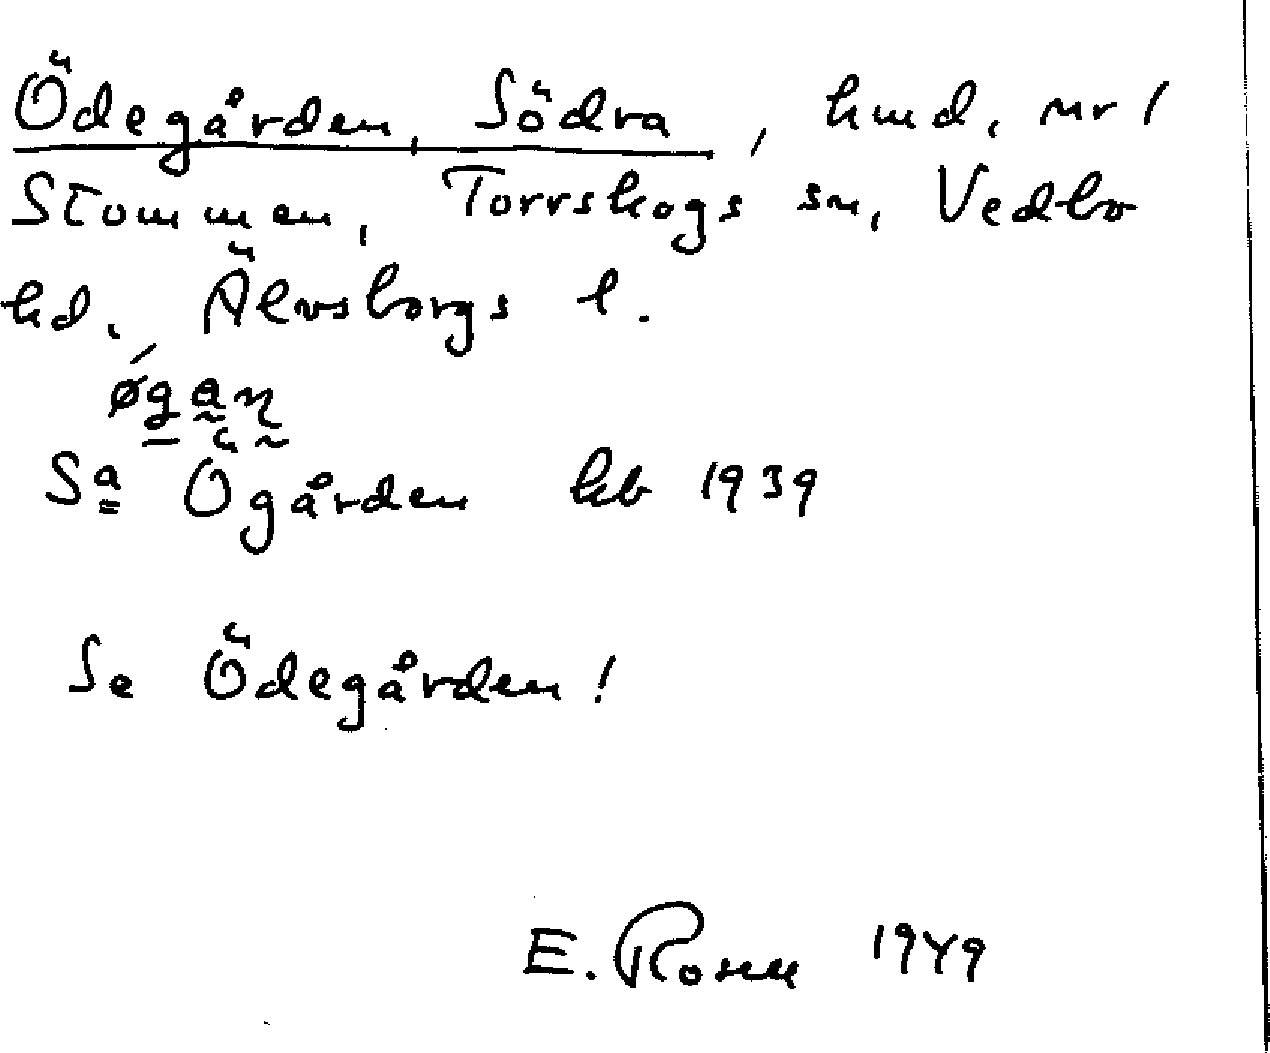 Ödegården, Södra, hmd. nr 1
Stommen, Torrskogs sn, Vedbo
hd. Älvsborgs l.
øgan
Sa Ögården kb 1939
Se Ödegården!
E. Rosell 1949